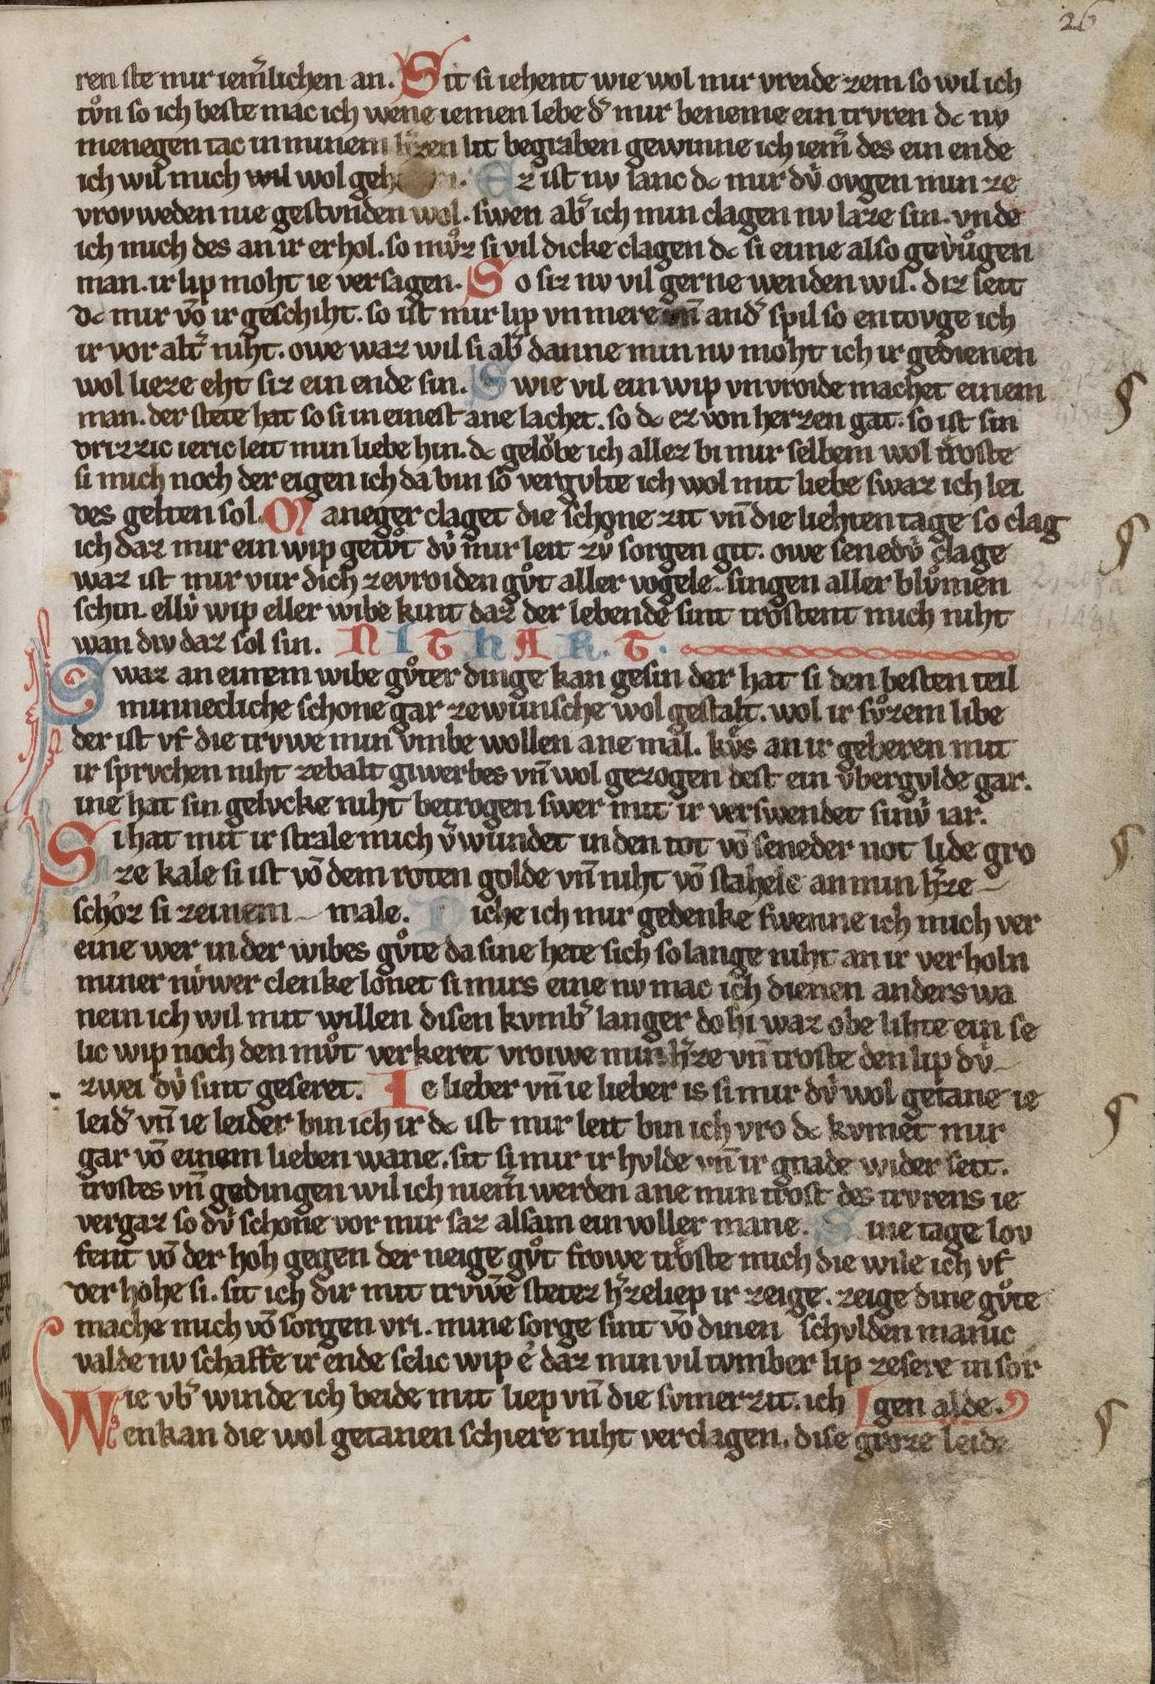 26
ren ste mir iem̄lichen an. Sit si iehent wie wol mir vreide zem so wil ich
tvͦn so ich beste mac ich wene iemen lebe dˀ mir beneme ein trvren dc nv
menegen tac in minem hˀzen lit begraben gewinne ich iem̄ des ein ende
ich wil mich wil wol geh Ez ist nv lanc dc mir dv̍ ovgen min ze
vrovweden nie gestvnden wol. swen abˀ ich min clagen nv laze sin. vnde
ich mich des an ir erhol. so mvͦz si vil dicke clagen dc si eine also gevuͤgen
man. ir lip moht ie versagen. So siz nv vil gerne wenden wil. diz leit
dc mir vō ir geschiht. so ist mir lip vnmere vn̄ andˀ spil so entovge ich
ir vor altˀ niht. owe waz wil si abˀ danne min nv moht ich ir gedienen
wol lieze eht siz ein ende sin. Swie vil ein wip vnvroide machet einem
man. der stete hat so si in einest ane lachet. so dc ez von herzen gat. so ist sin
drizzic ieric leit min liebe hin. dc geloͤbe ich allez bi mir selbem wol troste
si mich noch der eigen ich da bin so vergvlte ich wol mit liebe swaz ich lei
des gelten sol. Maneger claget die schone zit vn̄ die liehten tage so clag
ich daz mir ein wip getvͦt dv̍ mir leit zvͦ sorgen git. owe senedv̍ clage
waz ist mir vur dich zevroiden gvͦt aller vogele singen aller blvͦmen
schin. ellv̍ wip eller wibe kint daz der lebende sint trostent mich niht
wan div daz sol sin. NITHART.
Swaz an einem wibe gvͦter dinge kan gesin der hat si den besten teil
minnecliche schone gar zewunsche wol gestalt. wol ir svͦzem libe
der ist vf die trvwe min vmbe wollen ane mal. kvͥs an ir geberen mit
ir sprvchen niht zebalt giwerbes vn̄ wol gezogen dest ein v̍bergvlde gar.
me hat sin gelvcke niht betrogen swer mit ir verswendet sinv̍ iar.
Si hat mit ir strale mich v̍wundet in den tot vō seneder not lide gro
ze kale si ist vō dem roten golde vn̄ niht vō stahele an min hˀze
schoz si zeinem male. Diche ich mir gedenke swenne ich mich ver
eine wer in der wibes gvͦte da sine hete sich so lange niht an ir verholn
miner nv̍wer clenke lonet si mirs eine nv mac ich dienen anders wa
nein ich wil mit willen disen kvmbˀ langer doln waz obe lihte ein se
lic wip noch den mvͦt verkeret vroiwe min hˀze vn̄ troste den lip dv̍
zwei dv̍ sint geseret. Ie lieber vn̄ ie lieber is si mir dv̍ wol getane ie
leidˀ vn̄ ie leider bin ich ir dc ist mir leit bin ich vro dc kvmet mir
gar vō einem lieben wane. sit si mir ir hvlde vn̄ ir gnade wider seit.
trostes vn̄ gedingen wil ich niem̄ werden ane min trost des trvrens ie
vergaz so dv̍ schone vor mir saz alsam ein voller mane. Sine tage lov
fent vō der hoh gegen der neige gvͦt frowe troste mich die wile ich vf
der hohe si. sit ich dir mit trvwē stetez hˀzeliep ir zeige. zeige dine gvͦte
mache mich vō sorgen vri. mine sorge sint vō dinen schvlden manic
valde nv schaffe ir ende selic wip e daz min vil tvmber lip zesere in sor
Wie vbˀ winde ich beide mit liep vn̄ die svmerzit. ich gen alde.
enkan die wol getanen schiere niht verclagen. dise groze leide